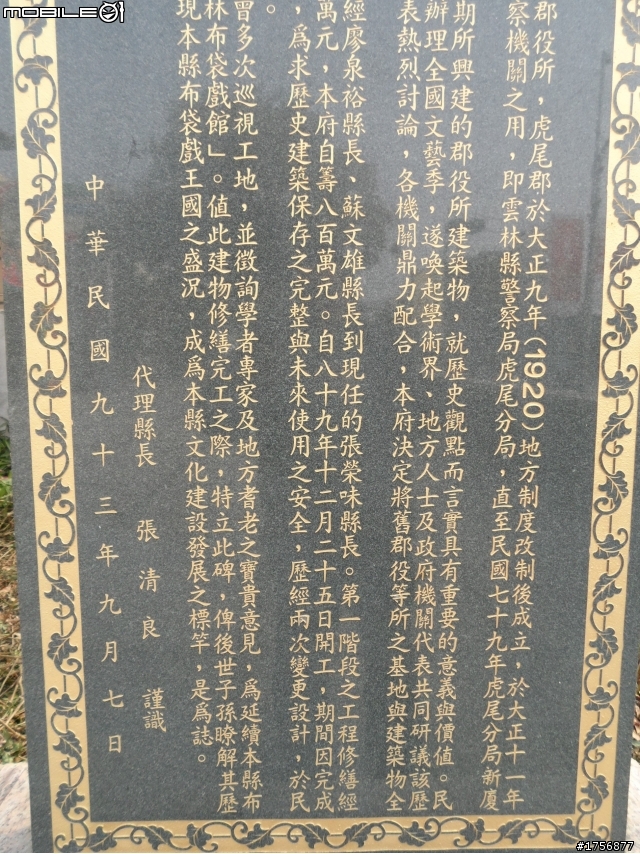 郡役所，虎尾郡於大正九年(1920)地方制度改制後成立，於大正十一年
察機關之用，即雲林縣警察局虎尾分局，直至民國七十九年虎尾分局新廈
期所興建的郡役所建築物，就歷史觀點而言實具有重要的意義與價值。民
辦理全國文藝季，遂喚起學術界、地方人士及政府機關代表共同研議該歷
表熱烈討論，各機關鼎力配合，本府決定將舊郡役等所之基地與建築物全
經廖泉裕縣長、蘇文雄縣長到現任的張榮味縣長。第一階段之工程修繕經
萬元，本府自籌八百萬元。自八十九年十二月二十五日開工，期間因完成
，為求歷史建築保存之完整與未來使用之安全，歷經兩次變更設計，於民
。
曾多次巡視工地，並徵詢學者專家及地方耆老之寶貴意見，為延續本縣布
林布袋戲館」。值此建物修繕完工之際，特立此碑，俾後世子孫瞭解其歷
現本縣布袋戲王國之盛況，成為本縣文化建設發展之標竿，是為誌。
代理縣長 張清良 謹識
中華民國九十三年九月七日
mobile01
#1756877